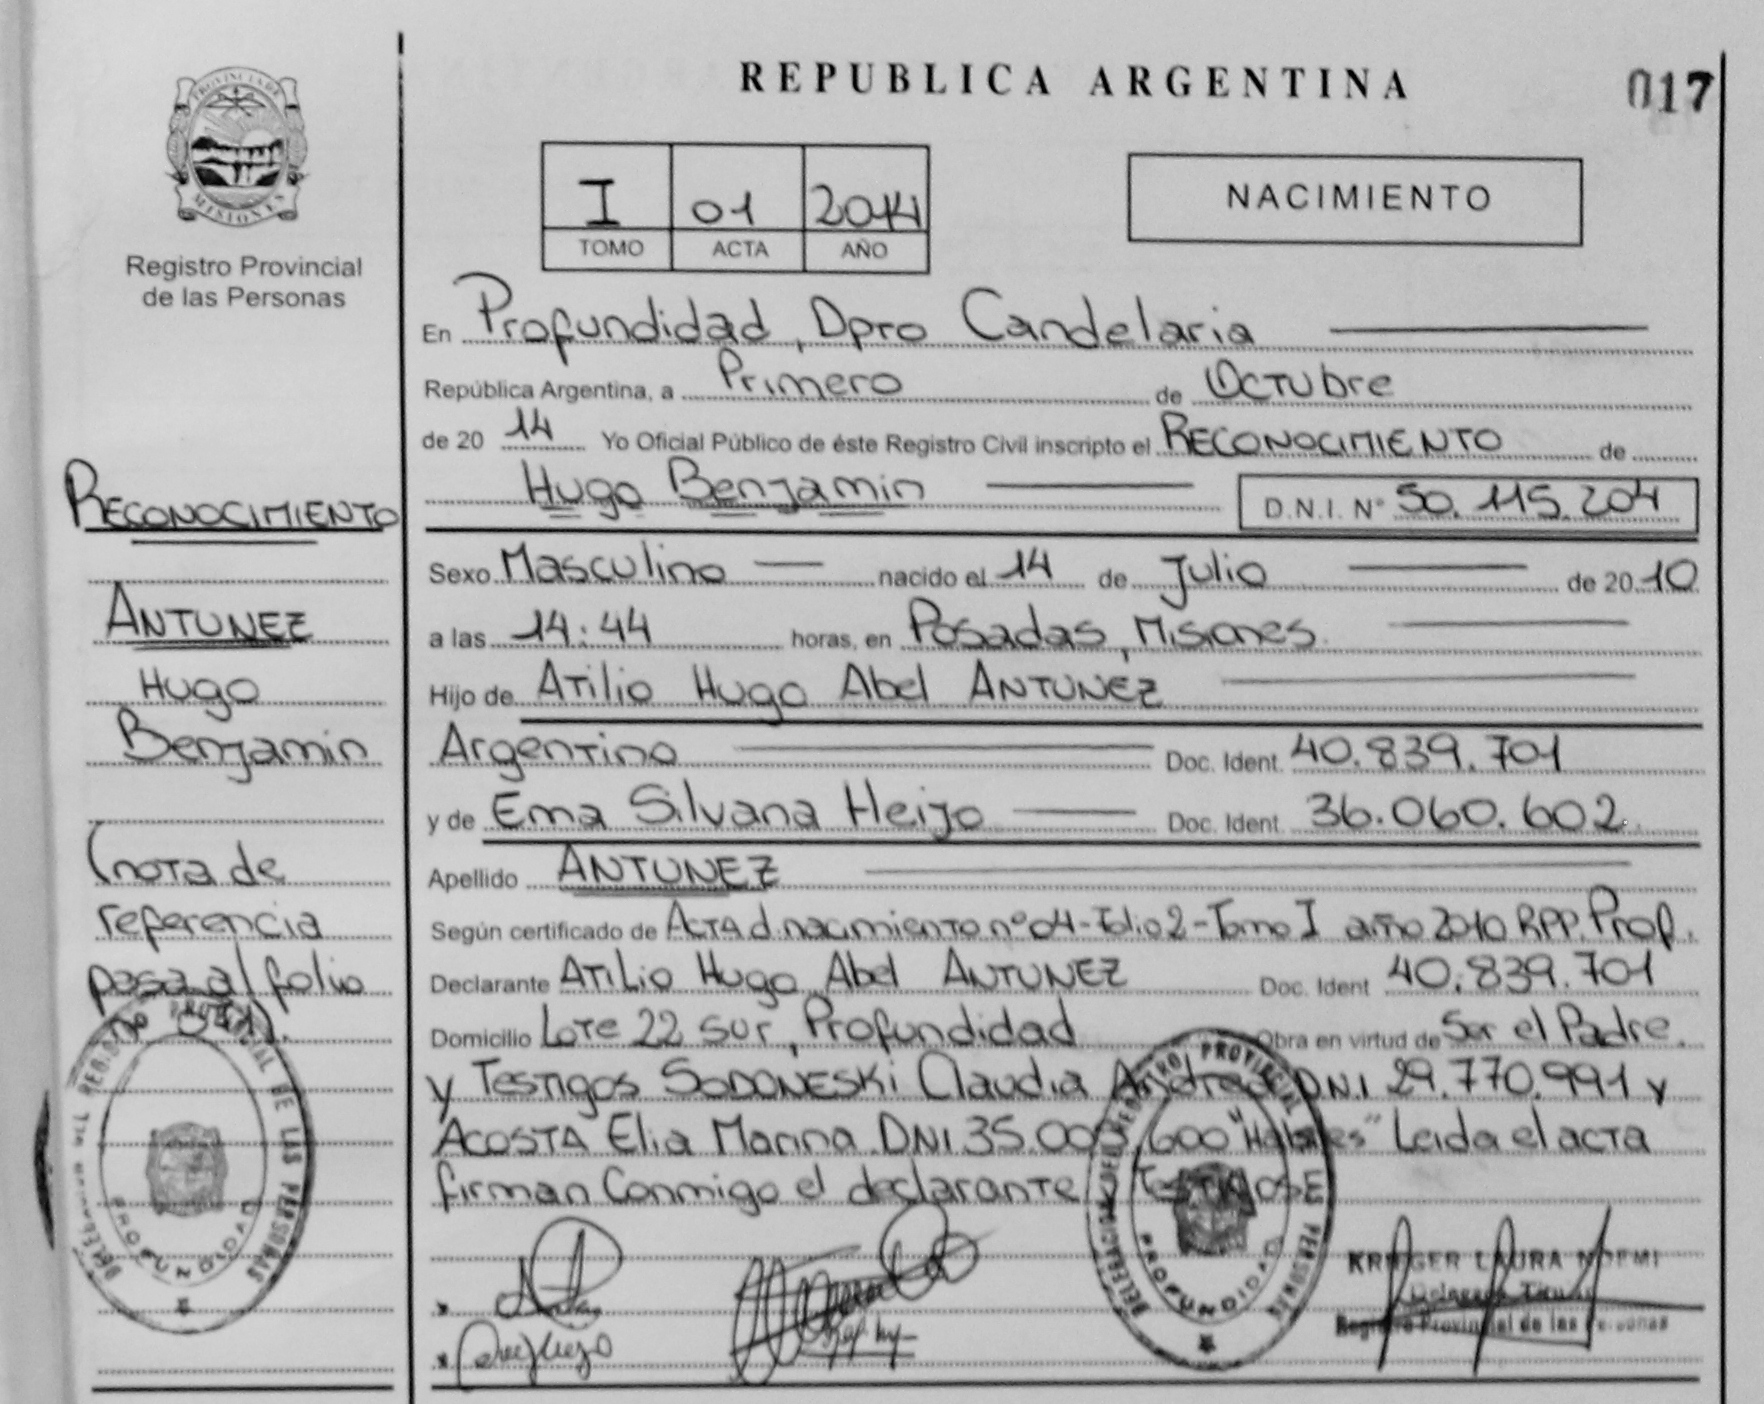 REPUBLICA ARGENTINA
017
PROVINCIA DE
MISIONES
Registro Provincial
de las Personas
I 01 2014
TOMO ACTA AÑO
NACIMIENTO
En Profundidad, Dpto Candelaria
República Argentina, a Primero de Octubre
de 20 14 Yo Oficial Público de éste Registro Civil inscripto el RECONOCIMIENTO de
Hugo Benjamin D.N.I. Nº 50.115.204
Sexo Masculino nacido el 14 de Julio de 2010
a las 14:44 horas, en Posadas, Misiones.
Hijo de Atilio Hugo Abel ANTUNEZ
Argentino Doc. Ident. 40.839.701
y de Ema Silvana Heijo Doc. Ident. 36.060.602.
Apellido ANTUNEZ
Según certificado de Acta d. nacimiento nº 04-Folio 2-Tomo I año 2010 RPP. Prof.
Declarante Atilio Hugo Abel ANTUNEZ Doc. Ident 40.839.701
Domicilio Lote 22 sur, Profundidad Obra en virtud de Ser el Padre.
y Testigos SODONESKI Claudia Andrea DNI 29.770.991 y
ACOSTA Elia Marina DNI 35.00 .600 "Habiles" Leida el acta
firman Conmigo el declarante y
RECONOCIMIENTO
ANTUNEZ
Hugo
Benjamin
(nota de
referencia
pasa al folio
nº
DELEGACION DEL REGISTRO PROVINCIAL DE LAS PERSONAS
PROFUNDIDAD
DELEGACION DEL REGISTRO PROVINCIAL PERSONAS
PROFUNDIDAD
KRIEGER LAURA NOEMI
Delegada Titular
Registro Provincial de las Personas